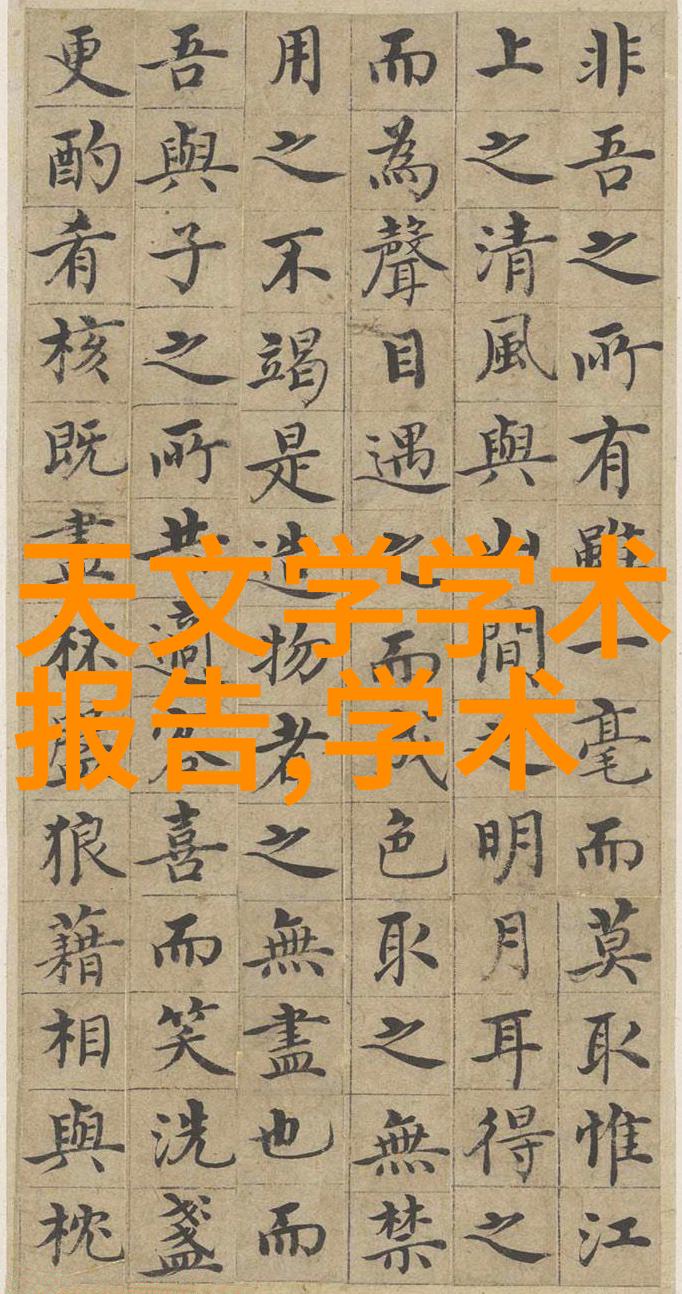 天文学学术
报告,学术
非吾之所有雖一毫而莫取惟江
上之清風與山間之明月耳得之
而為聲目遇之而成色取之無禁
用之不竭是造物者之無盡也而
吾與子之所共適客喜而笑洗盞
更酌肴核既盡杯盤狼藉相與枕